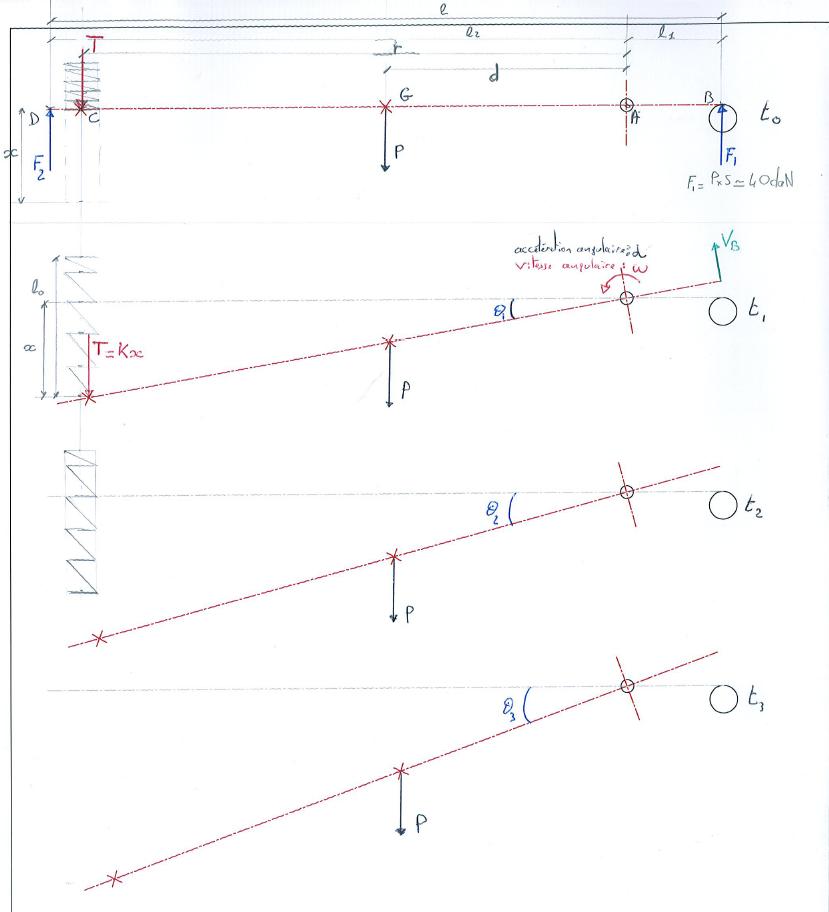 l
l₂ l₁
T r
d
D C G A B t₀
x F₂ P F₁
F₁ = P×S ≃ 40daN
accélération angulaire : α
vitesse angulaire : ω
V_B
l₀
x
θ₁ t₁
T = Kx
P
θ₂ t₂
P
θ₃ t₃
P